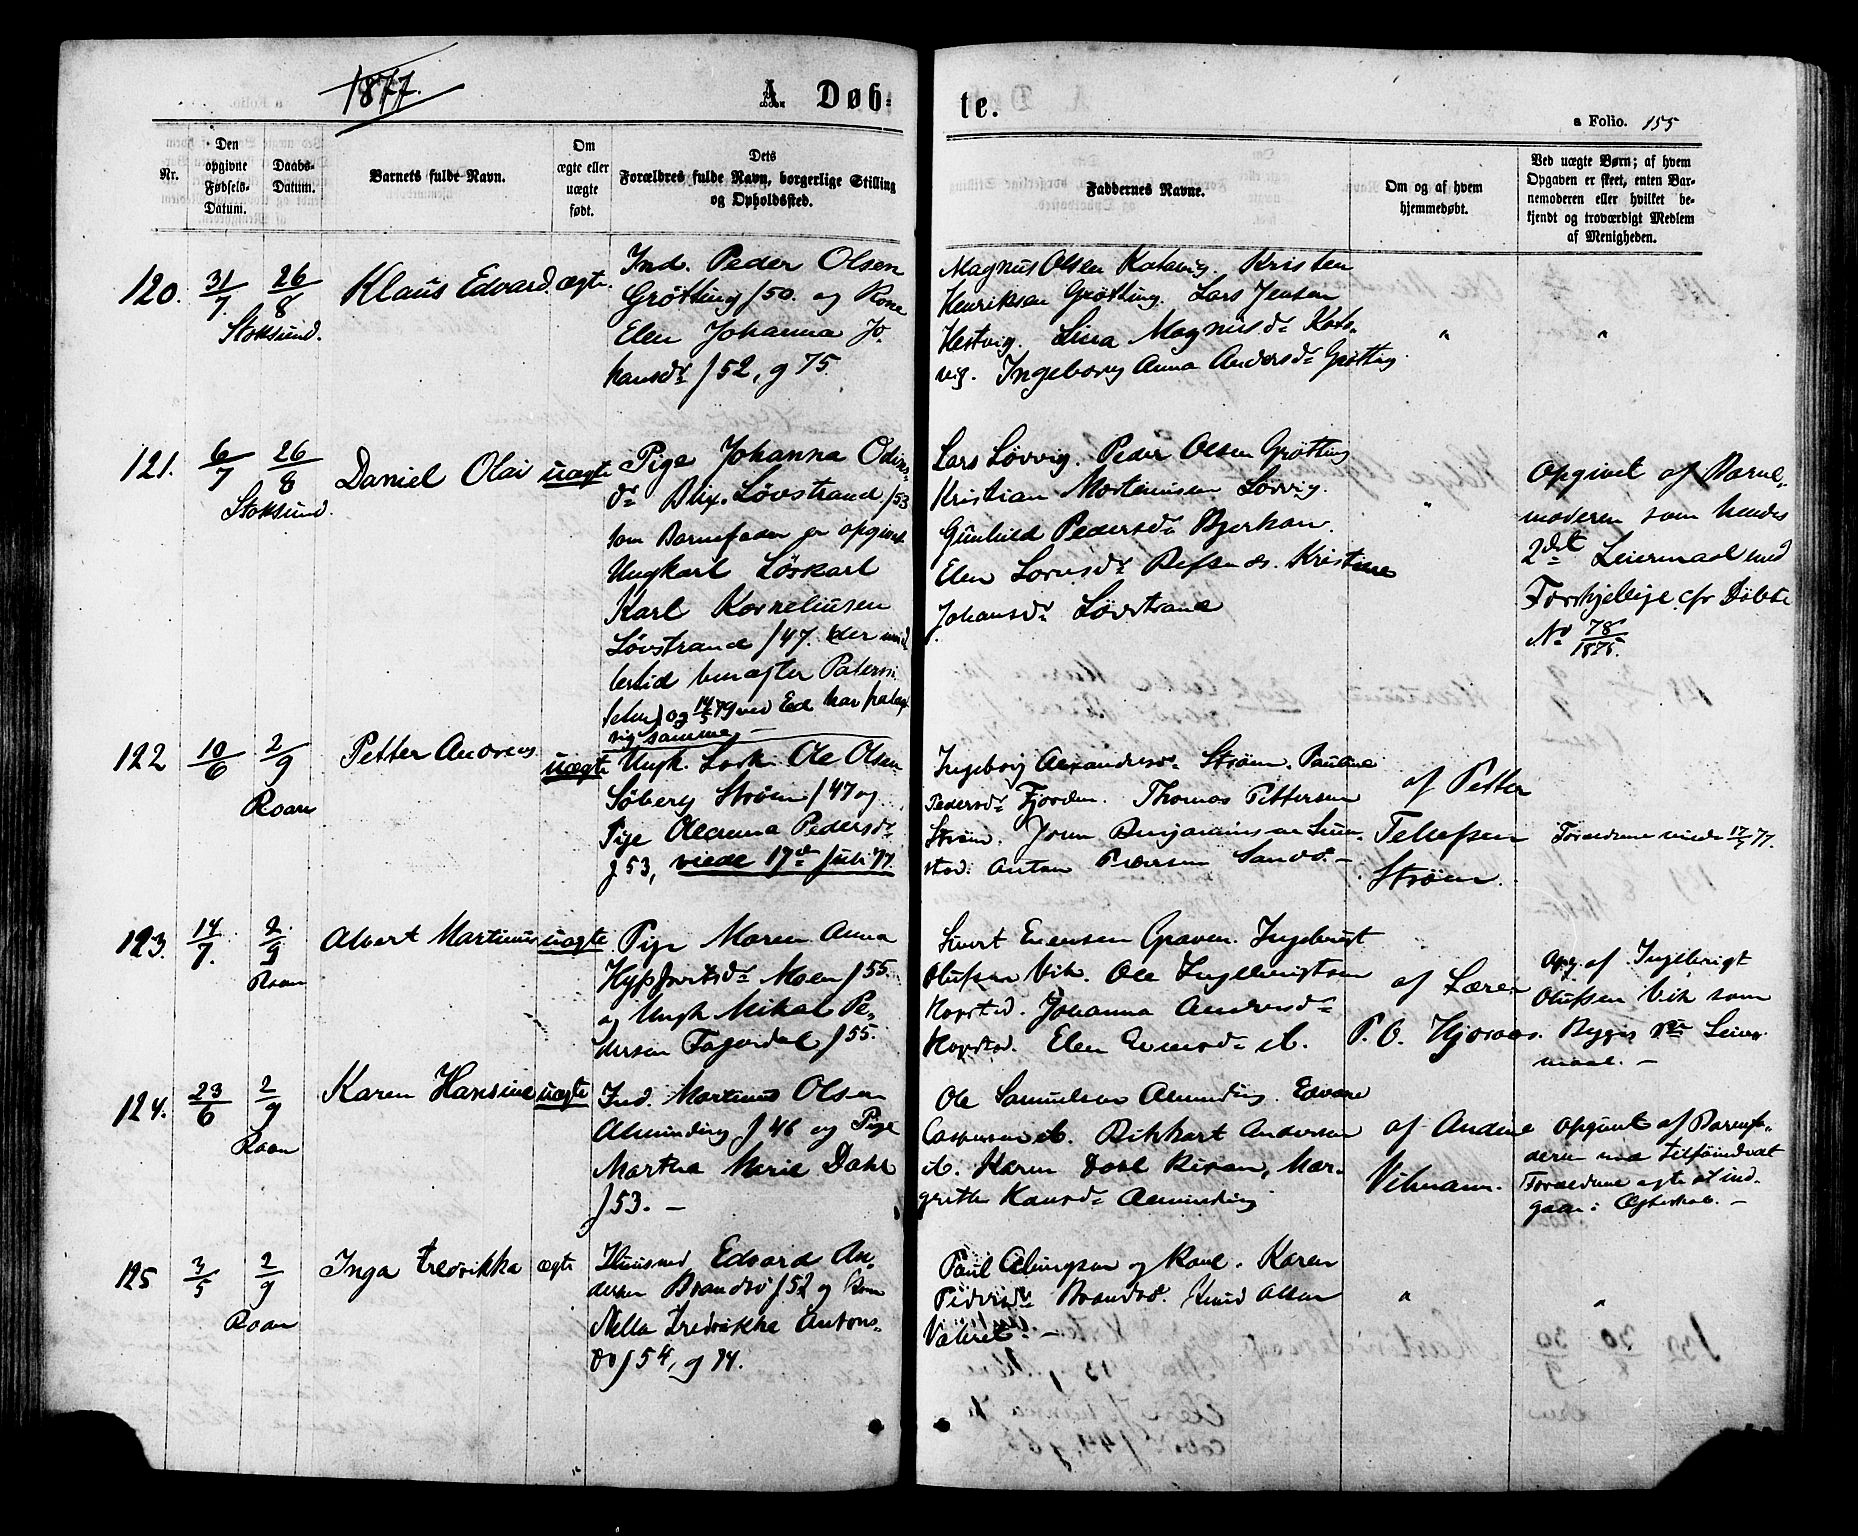 1877.
A. Døb-
te.
a Folio. 155
Nr.
Den
opgivne
Fødsels-
Datum.
Daabs-
Datum.
Barnets fulde Navn.
Om
ægte eller
uægte
født.
Dets
Forældres fulde Navn, borgerlige Stilling
og Opholdssted.
Faddernes Navne.
Om og af hvem
hjemmedøbt.
Ved uægte Børn; af hvem
Opgaven er skeet, enten Bar-
nemoderen eller hvilket be-
kjendt og troværdigt Medlem
af Menigheden.
120.
31/7
26/8
Stoksund.
Klaus Edvard.
ægte.
Ind. Peder Olsen
Grøtting f 50. og Kone
Elen Johanna Jo-
hansdr f 52, g 75.
Magnus Olsen Kotavig. Kristen
Henriksen Grøtting. Lars Jensen
Hestvig. Lina Magnusdr Kota-
vig. Ingeborg Anna Andersdr Grøtting.
"
"
121.
6/7
26/8
Stoksund.
Daniel Olai
uægte
Pige Johanna Odins-
dr Blix. Løvstrand f 53
som Barnefader er opgivet
Ungkarl Løskarl
Karl Korneliusen
Løvstrand f 47. der imid
lertid benægter Paterni
teten og 14/5 79 ved Ed har fralagt
sig samme. -
Lars Løvvig. Peder Olsen Grøtting
Kristian Mortinussen Løvvig.
Gunhild Pedersdr Bjerkan.
Elen Larsdr Refsnes. Kristine
Johansdr Løvstrand
"
Opgivet af Barne-
moderen som hendes
2det Leiermaal med
Forskjellige cfr Døbte
No 78/1875.
122
10/6
2/9
Roan
Petter Andreas
uægte
Ungk. Losk. Ole Olsen
Søberg Strøm f 47 og
Pige Oleanna Pedersdr
f 53, viede 17de Juli 77.
Ingeborg Alexandersdr Strøm. Pauline
Pedersdr Fjorden. Thomas Pettersen
Strøm. John Benjaminsen Sum-
stad. Anton Pedersen Sandv. -
af Petter
Tellefsen
Strøm.
Forældrene viede 17/7 77.
123.
14/7.
2/9
Roan
Albert Martinus
uægte
Pige Maren Anna
Moen f 55.
og Ungk Mikal Pe-
dersen Fagerdal f 55.
Sivert Evensen Graven. Ingebrigt
Olufsen Vik. Ole Ingebrigtsen
Hopstad. Johanna Andersdr
Hopstad. Elen Evensdr ib.
af Lærer
P. O. Hjoraas.
Opg. af Ingebrigt
Olufsen Vik som
Begges 1ste Leier
maal. -
124.
23/6
2/9
Roan
Karen Hansine
uægte
Ind. Martinus Olsen
Alminding f 46 og Pige
Martha Marie Dahl
f 53. -
Ole Samuelsen Alminding. Edvard
Caspersen ib. Rikhart Andersen
ib. Karen Dahl Bisan, Mar-
grethe Hansdr Alminding
af Andine
Vilmann.
Opgivet af Barnefa-
deren med Tilføiende at
Forældrene agte at ind-
gaa i Ægteskab. -
125
3/5
2/9
Roan
Inga Fredrikka
ægte
Huusmd Edvard An-
dersen Brandsø f 52 og Kone
Nella Fredrikka Antons-
dr f 54, g 74.
Paul og Kone. Karen
Pedersdr Brandsø. Knud Olsen
Valeret. -
"
"